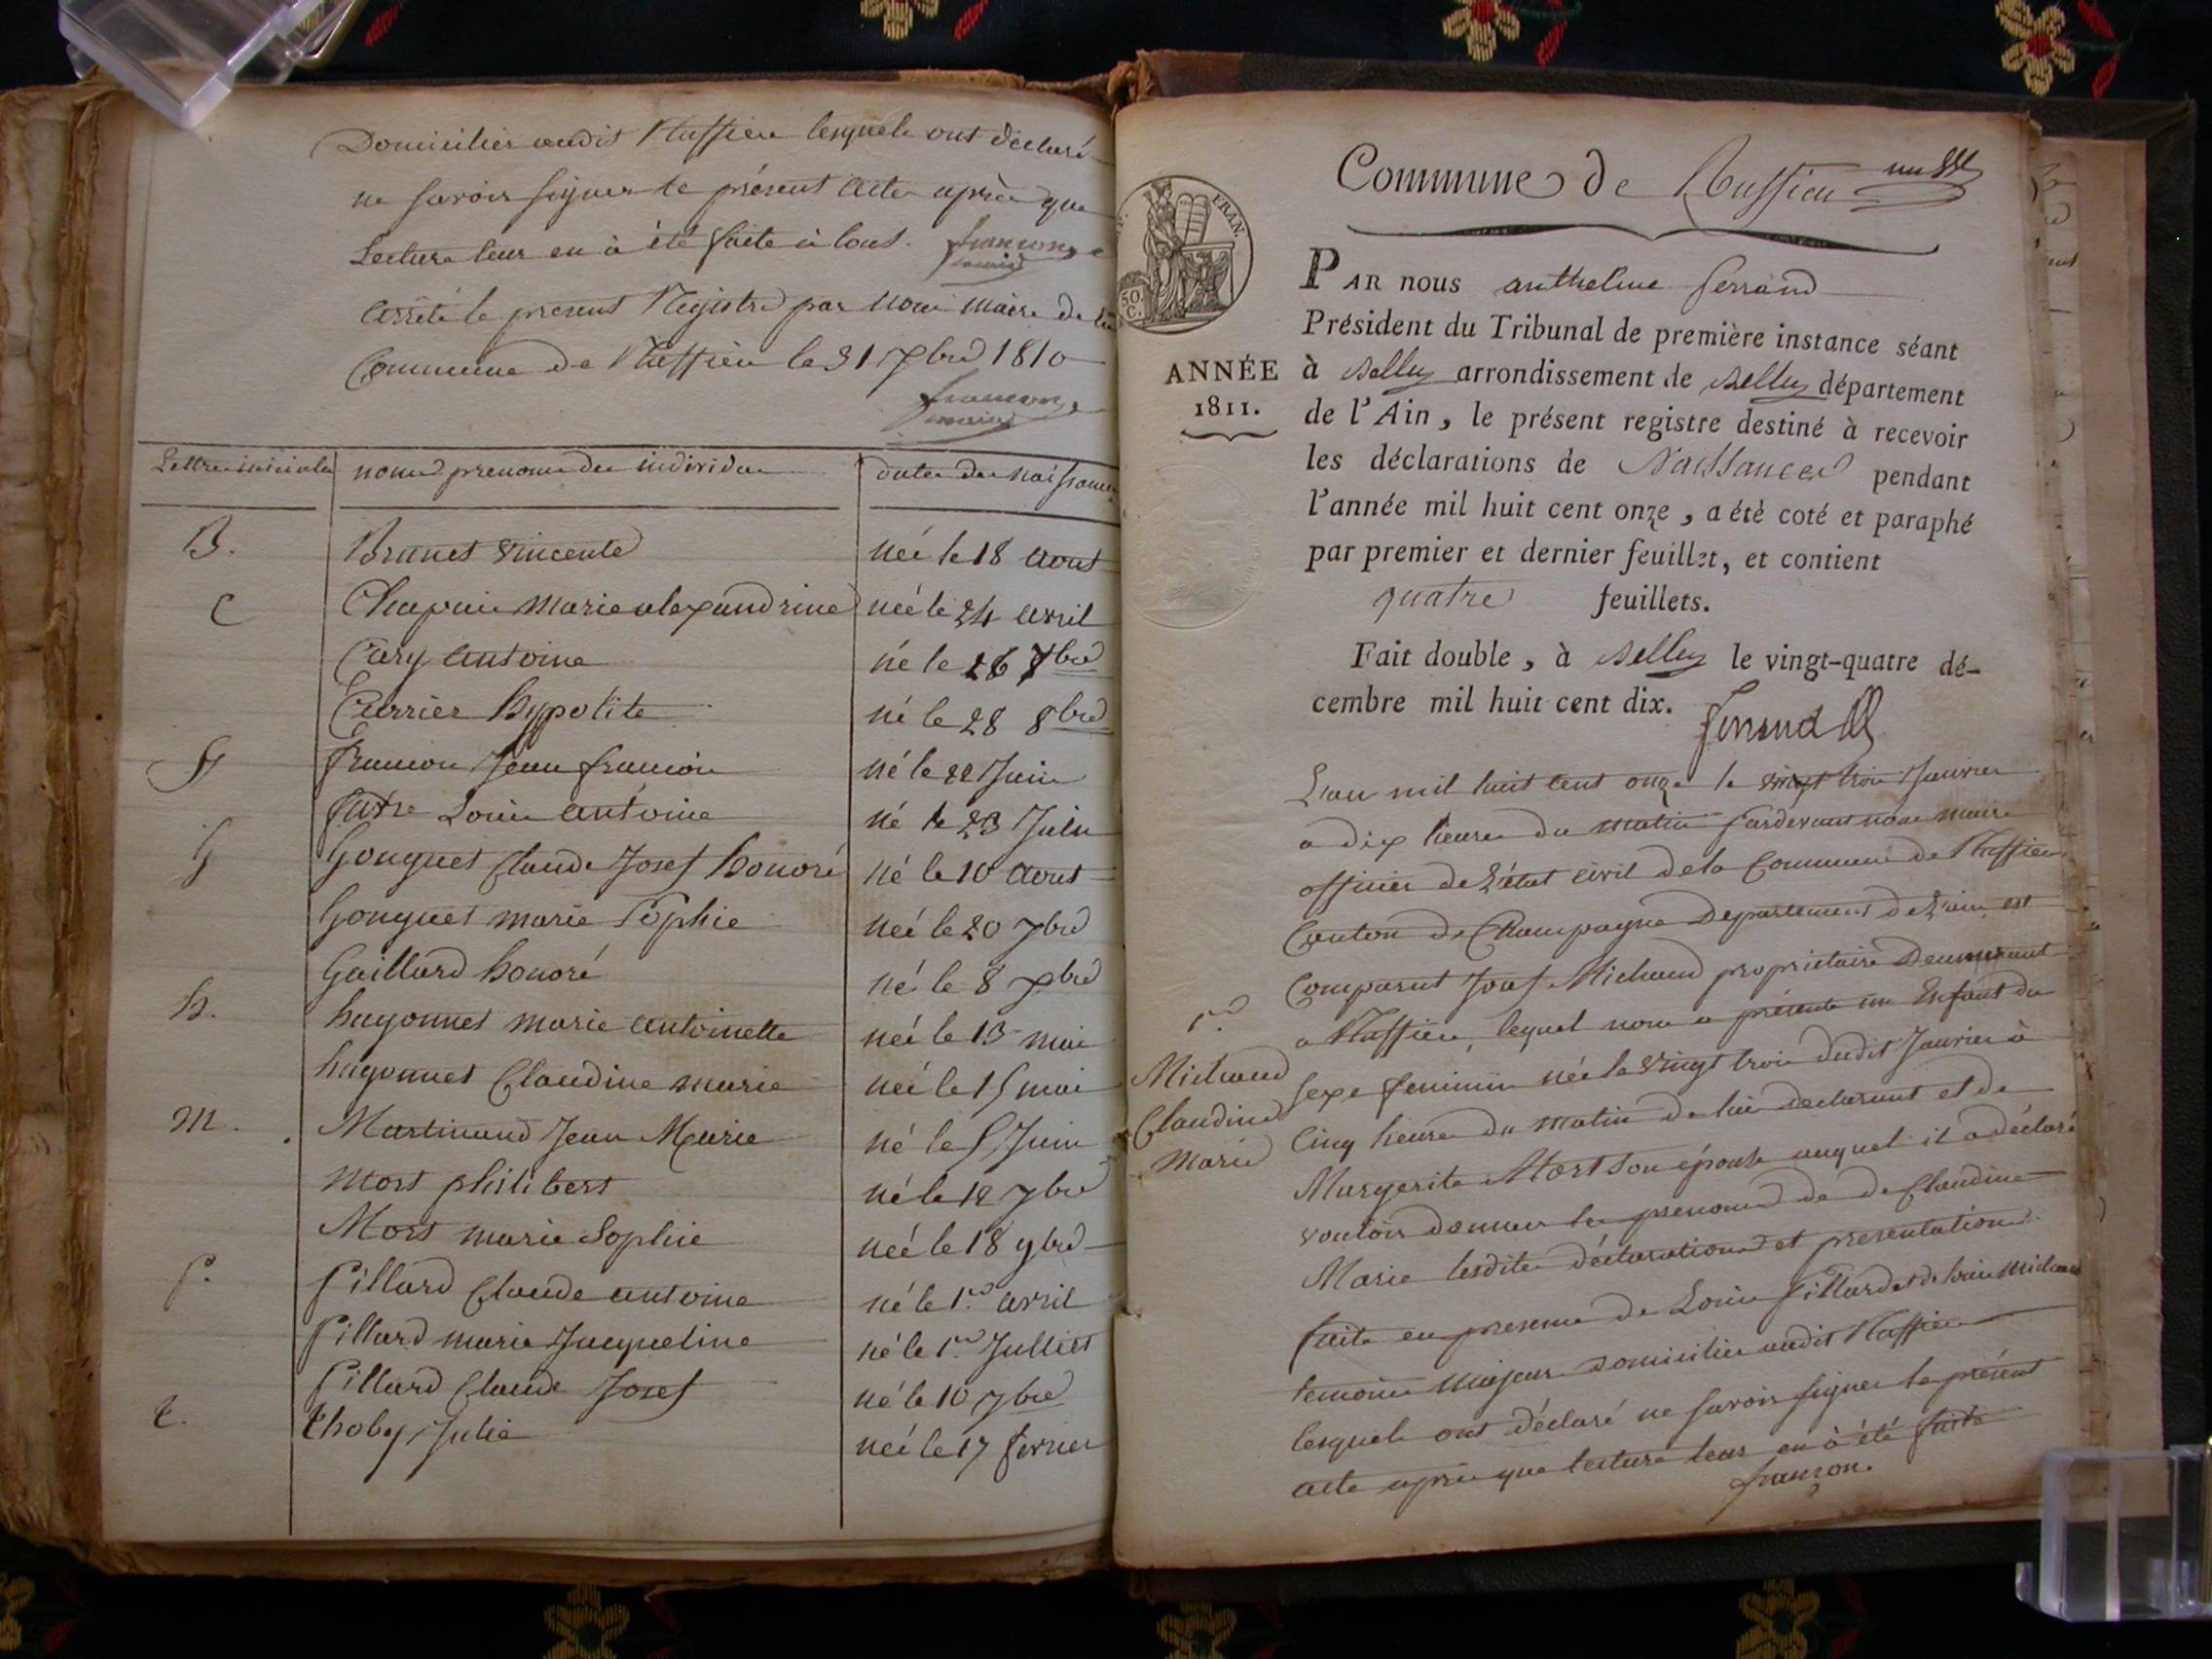 Domiciliés audit Ruffieu lesquels ont déclaré
ne savoir signer le présent acte après que
Lecture leur en à été faite à tous. françon
maire
arrêté le present Registre par nous maire de la
Commune de Ruffieu le 31 xbre 1810
françon
maire
Lettres initiales noms prenoms des individus dates des naissances
B. Brunet vincente née le 18 aout
C Chapuis Marie alexandrine née le 24 avril
Cary antoine né le 26 7bre
Currier hypolite né le 28 8bre
F françon Jean françois né le 22 Juin
favre Louis antoine né le 23 Juin
G Gonguet Claude Josef honoré né le 10 aout
Gonguet marie Sophie née le 20 7bre
Gaillard honoré né le 8 xbre
h. hugonnet marie antoinette née le 13 mai
hugonnet Claudine marie née le 15 mai
M. Martinand Jean Marie né le 5 Juin
Mort philibert né le 12 7bre
Mort marie Sophie née le 18 9bre
P. Pillard Claude antoine né le 1er avril
Pillard marie Jacqueline né le 1er Julliet
Pillard Claude Josef né le 10 7bre
t. thoby Julie née le 17 fevrier
Commune de Ruffieu
FRAN.
50 C.
ANNÉE
1811.
PAR nous anthelme ferrand
Président du Tribunal de première instance séant
à Belley arrondissement de Belley département
de l'Ain, le présent registre destiné à recevoir
les déclarations de Naissances pendant
l'année mil huit cent onze, a été coté et paraphé
par premier et dernier feuillet, et contient
quatre feuillets.
Fait double, à Belley le vingt-quatre dé-
cembre mil huit cent dix.
ferrand
L'an mil huit cent onze le vingt trois Janvier
a dix heures du matin pardevant nous maire
officier de L'état civil de la Commune de Ruffieu
Canton de Champagne Departement de L'ain est
Comparut Josef Michaud propriétaire Demeurant
a Ruffieu, lequel nous a présenté un Enfant du
sexe feminin née le vingt trois dudit Janvier à
Cinq heures du matin de lui declarant et de
Margerite Mort son épouse auquel il a déclaré
vouloir donner les prenoms de de Claudine
Marie lesdites déclarations et presentations
faite en presence de Louis Pillard et de Louis Michaud
temoins majeurs domiciliés audit Ruffieu
lesquels ont déclaré ne savoir signer le présent
acte après que lecture leur en à été faite
françon.
1er
Michaud
Claudine
Marie